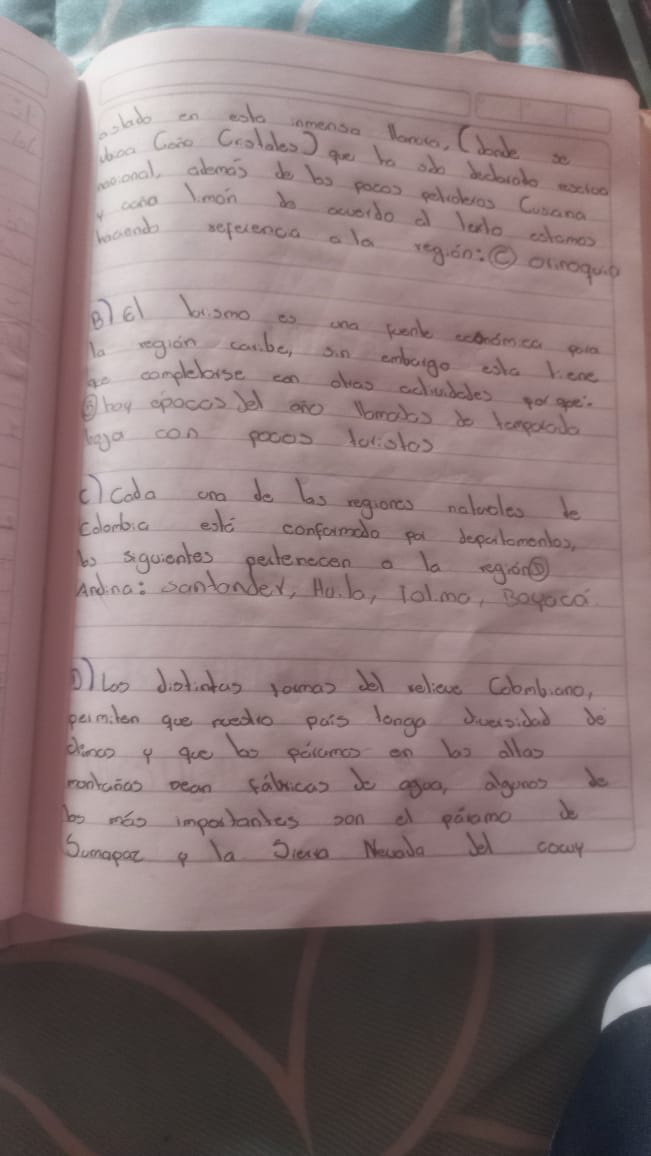 aslado en esta inmensa llanura, (donde se
ubica Caño Cristales) que ha sido declarado
nacional, además de los pozos petroleros Cusiana
y caño limón de acuerdo al texto estamos
haciendo referencia a la región: Ⓒ Orinoquia
B) El turismo es una fuente económica para
la región caribe, sin embargo esta tiene
que completarse con otras actividades por que:
Ⓑ hay epocas del año llamadas de temporada
baja con pocos turistas
C) Cada una de las regiones naturales de
Colombia está conformada por departamentos,
los siguientes pertenecen a la región Ⓓ
Andina: Santander, Huila, Tolima, Boyacá.
D) Las distintas formas del relieve Colombiano,
permiten que nuestro país tenga diversidad de
climas y que los páramos en las altas
montañas sean fábricas de agua, algunos de
los más importantes son el páramo de
Sumapaz y la Sierra Nevada del cocuy